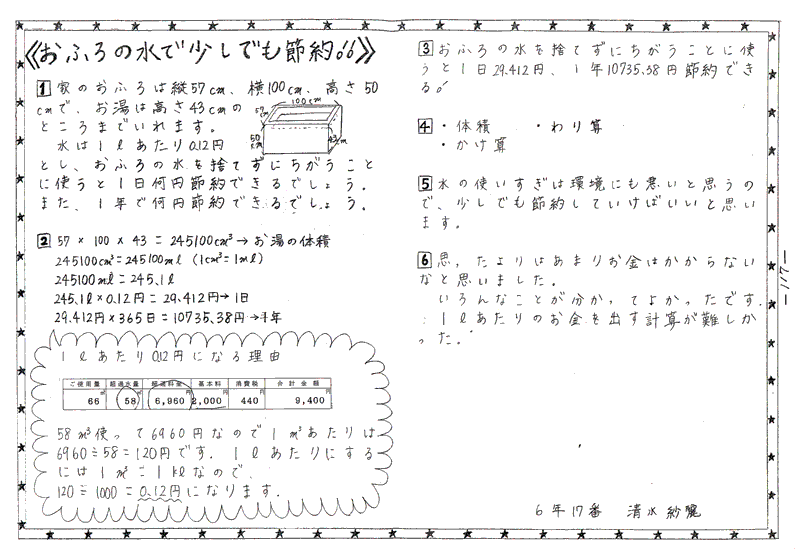 《おふろの水で少しでも節約!!》
1 家のおふろは縦57cm、横100cm、高さ50
cmで、お湯は高さ43cmの
ところまでいれます。
水は1ℓあたり0.12円
とし、おふろの水を捨てずにちがうこと
に使うと1日何円節約できるでしょう。
また、1年で何円節約できるでしょう。
100cm
57cm
50cm
43cm
2 57 × 100 × 43 = 245100cm³→お湯の体積
245100cm³=245100mℓ (1cm³=1mℓ)
245100mℓ=245.1ℓ
245.1ℓ×0.12円=29.412円→1日
29.412円×365日=10735.38円→1年
1ℓあたり0.12円になる理由
ご使用量 超過水量 超過料金 基本料 消費税 合計金額
66 58 6,960 2,000 440 9,400
58m³使って6960円なので1m³あたりは
6960÷58=120円です. 1ℓあたりにする
には1m³=1kℓなので、
120÷1000=0.12円になります.
3 おふろの水を捨てずにちがうことに使
うと1日29.412円、1年10735.38円節約でき
る。
4 ・体積 ・わり算
・かけ算
5 水の使いすぎは環境にも悪いと思うの
で、少しでも節約していけばいいと思い
ます。
6 思,たよりはあまりお金はかからない
なと思いました。
いろんなことが分かってよかったです.
1ℓあたりのお金を出す計算が難しか
った.
6年17番 清水紗
-117-